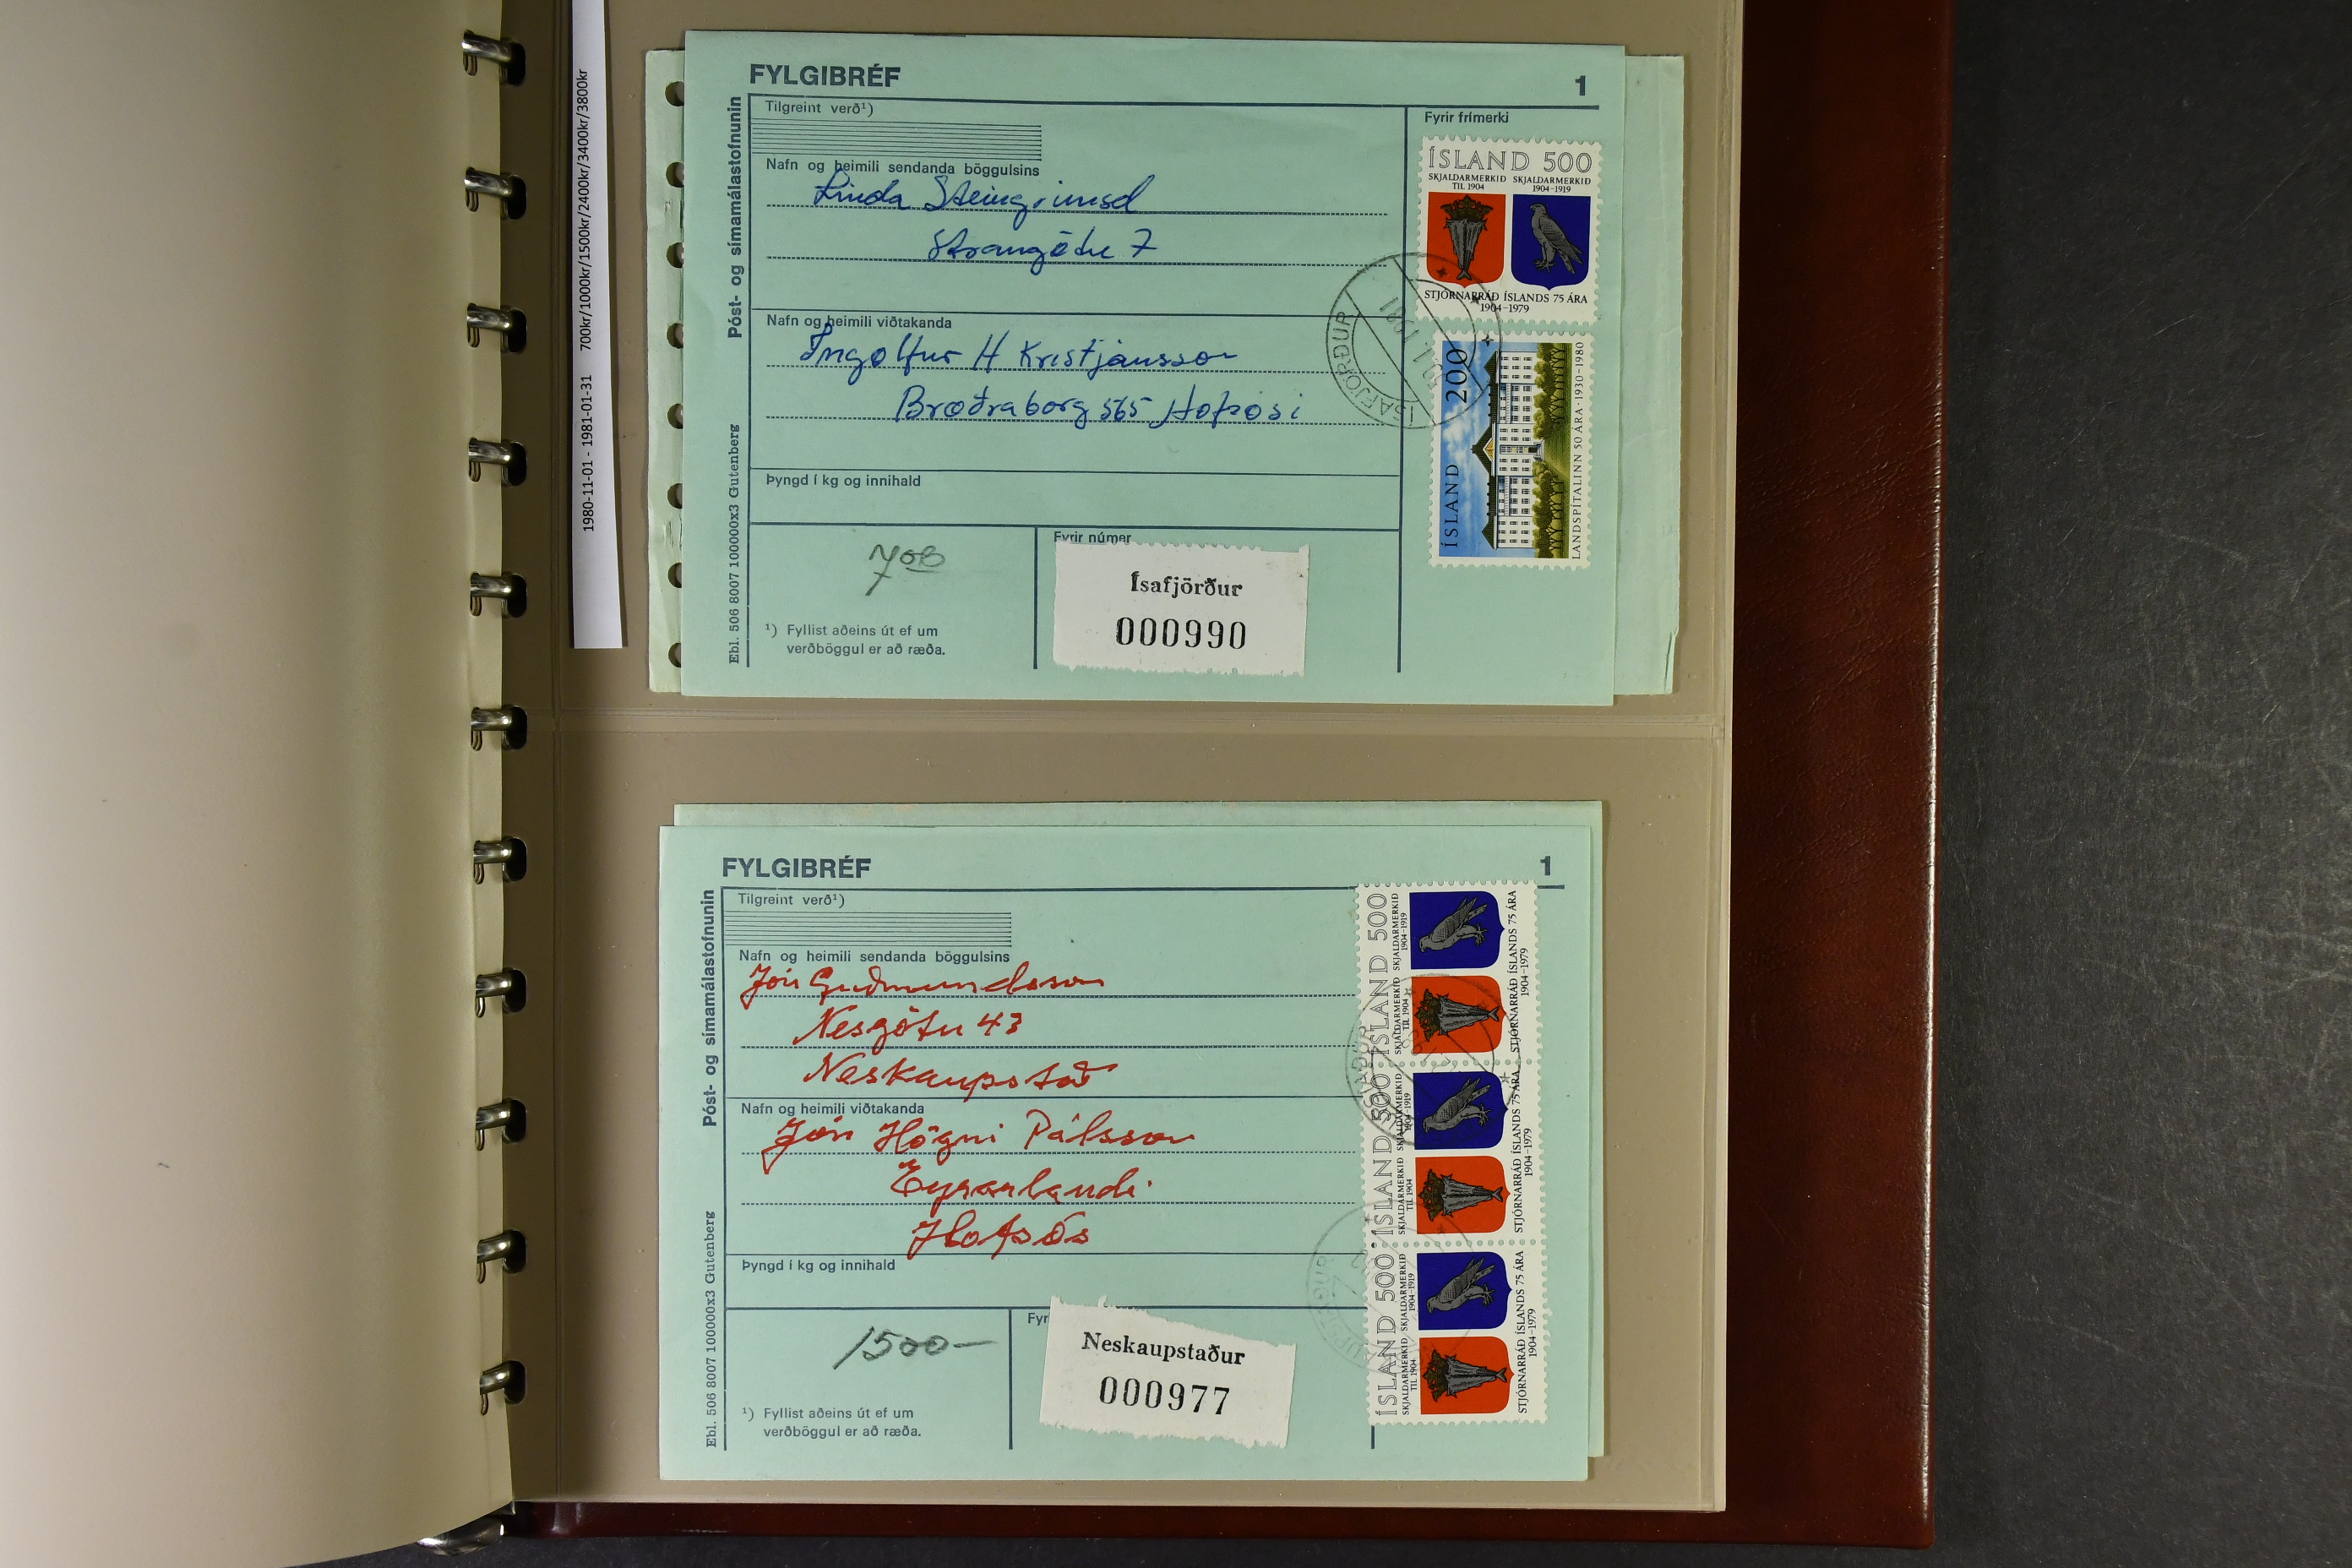 1980-11-01 - 1981-01-31 700kr/1000kr/1500kr/2400kr/3400kr/3800kr
FYLGIBRÉF
1
Póst- og símamálastofnunin
Ebl. 506 8007 100000x3 Gutenberg
Tilgreint verð¹)
Nafn og heimili sendanda böggulsins
Linda Steingrimsd
7
Nafn og heimili viðtakanda
Ingolfur H Kristjánsson
Bræðraborg 565 Hofsósi
Þyngd í kg og innihald
700
¹) Fyllist aðeins út ef um
verðböggul er að ræða.
Fyrir númer
Ísafjörður
000990
Fyrir frímerki
ÍSLAND 500
SKJALDARMERKIÐ TIL 1904
SKJALDARMERKIÐ 1904-1919
STJÓRNARRÁÐ ÍSLANDS 75 ÁRA
1904-1979
ÍSAFJÖRÐUR
ÍSLAND 200
LANDSPÍTALINN 50 ÁRA · 1930-1980
FYLGIBRÉF
1
Póst- og símamálastofnunin
Ebl. 506 8007 100000x3 Gutenberg
Tilgreint verð¹)
Nafn og heimili sendanda böggulsins
Jón Guðmundsson
Nesgötu 43
Neskaupstað
Nafn og heimili viðtakanda
Jón Högni Pálsson
Eyrarlandi
Hofsós
Þyngd í kg og innihald
1500-
¹) Fyllist aðeins út ef um
verðböggul er að ræða.
Fyr
Neskaupstaður
000977
ÍSLAND 500
SKJALDARMERKIÐ TIL 1904
SKJALDARMERKIÐ 1904-1919
STJÓRNARRÁÐ ÍSLANDS 75 ÁRA
1904-1979
ÍSLAND 500
SKJALDARMERKIÐ TIL 1904
SKJALDARMERKIÐ 1904-1919
STJÓRNARRÁÐ ÍSLANDS 75 ÁRA
1904-1979
ÍSLAND 500
SKJALDARMERKIÐ TIL 1904
SKJALDARMERKIÐ 1904-1919
STJÓRNARRÁÐ ÍSLANDS 75 ÁRA
1904-1979